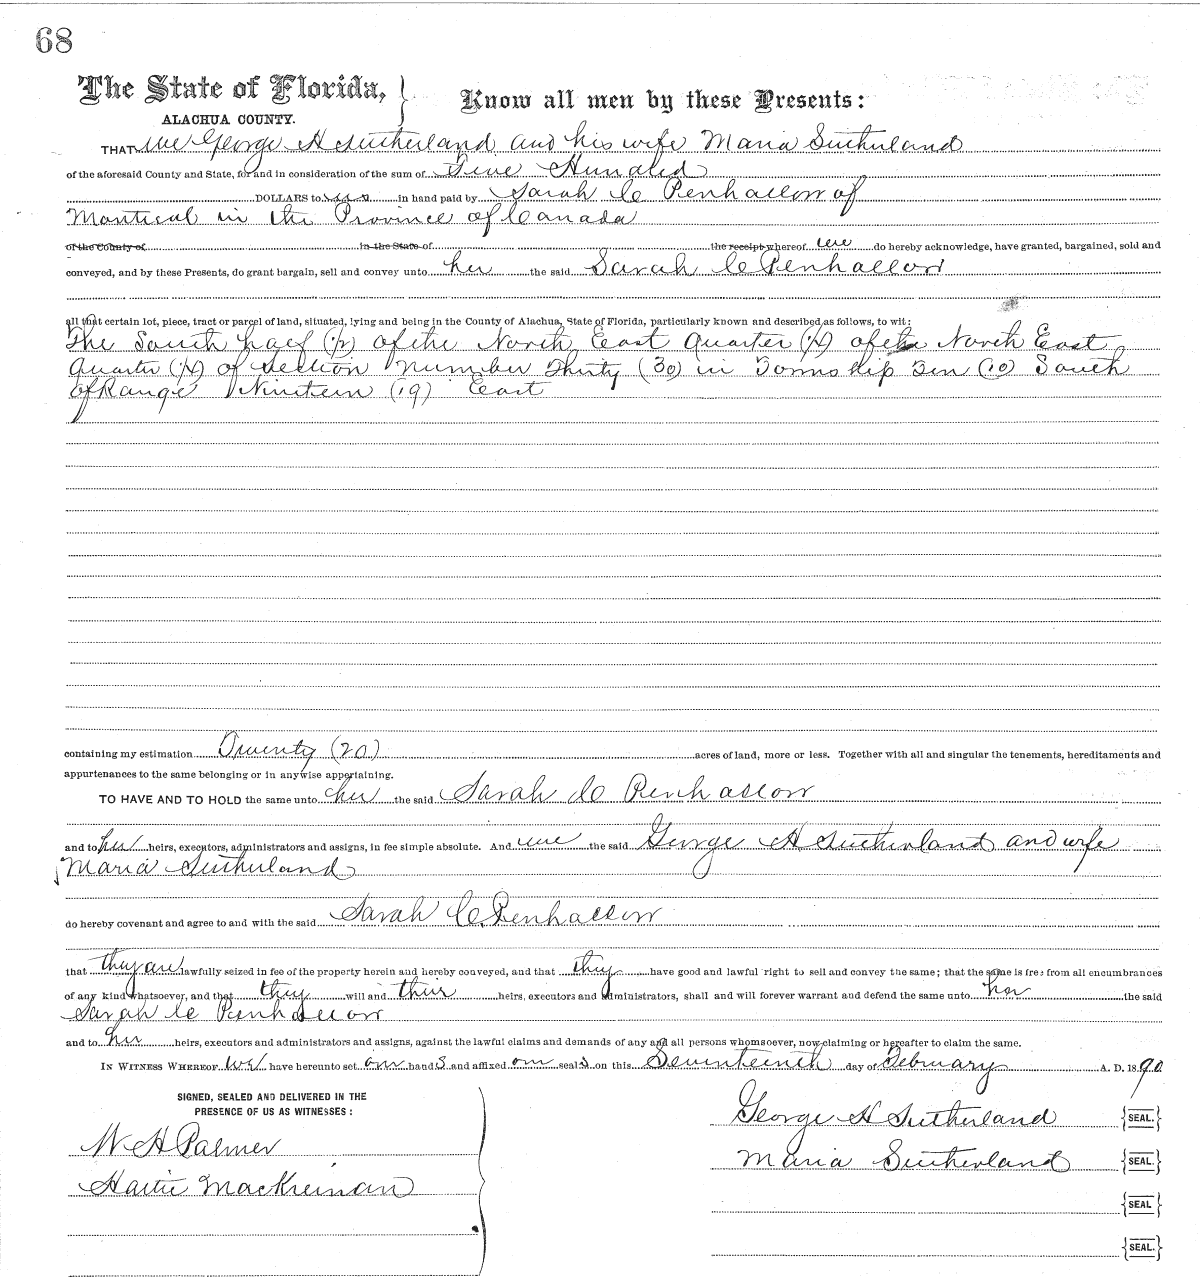 68
The State of Florida, } Know all men by these Presents:
ALACHUA COUNTY.
THAT we George H Sutherland and his wife Maria Sutherland
of the aforesaid County and State, for and in consideration of the sum of Five Hundred
DOLLARS to us in hand paid by Sarah C Penhallow of
Montreal in the Province of Canada
of the County of in the State of the receipt whereof we do hereby acknowledge, have granted, bargained, sold and
conveyed, and by these Presents, do grant bargain, sell and convey unto her the said Sarah C Penhallow
all that certain lot, piece, tract or parcel of land, situated, lying and being in the County of Alachua, State of Florida, particularly known and described as follows, to wit:
The South half (1/2) of the North East Quarter (1/4) of the North East
Quarter (1/4) of Section Number Thirty (30) in Township Ten (10) South
of Range Nineteen (19) East
containing my estimation Twenty (20) acres of land, more or less. Together with all and singular the tenements, hereditaments and
appurtenances to the same belonging or in anywise appertaining.
TO HAVE AND TO HOLD the same unto her the said Sarah C Penhallow
and to her heirs, executors, administrators and assigns, in fee simple absolute. And we the said George H Sutherland and wife
Maria Sutherland
do hereby covenant and agree to and with the said Sarah C Penhallow
that they are lawfully seized in fee of the property herein and hereby conveyed, and that they have good and lawful right to sell and convey the same; that the same is free from all encumbrances
of any kind whatsoever, and that they will and their heirs, executors and administrators, shall and will forever warrant and defend the same unto her the said
Sarah C Penhallow
and to her heirs, executors and administrators and assigns, against the lawful claims and demands of any and all persons whomsoever, now claiming or hereafter to claim the same.
IN WITNESS WHEREOF we have hereunto set our hands and affixed our seals on this Seventeenth day of February A. D. 1890
SIGNED, SEALED AND DELIVERED IN THE
PRESENCE OF US AS WITNESSES:
W H Palmer
Hattie MacKinnan
George H Sutherland {SEAL.}
Maria Sutherland {SEAL.}
{SEAL}
{SEAL.}